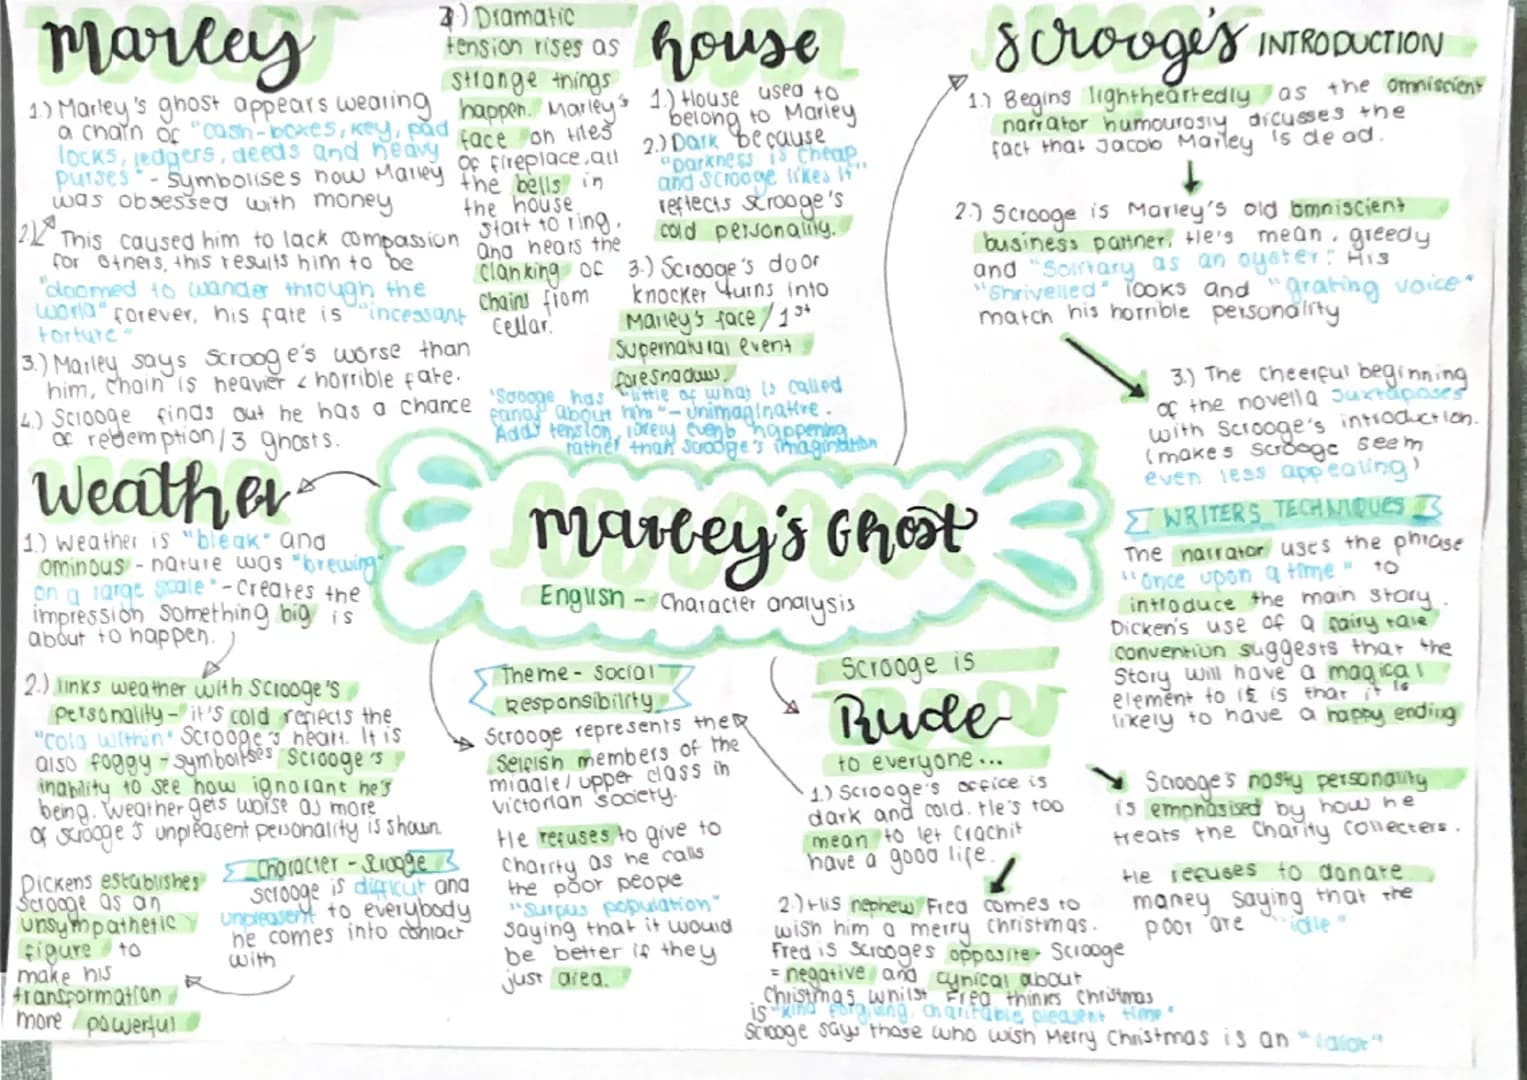 Marley
1.) Marley's ghost appears wearing
a chain of "cash-boxes, key, pad
locks, ledgers, deeds and heavy
purses" - symbolises how Marley
was obsessed with money
2.) This caused him to lack compassion
for others, this results him to be
"doomed to wander through the
world" forever, his fate is "incessant
torture"
3.) Marley says Scrooge's worse than
him, chain is heavier & horrible fate.
4.) Scrooge finds out he has a chance
of redemption/3 ghosts.
Dramatic
tension rises as
strange things
happen. Marley's
face on tiles
of fireplace, all
the bells in
the house
start to ring,
and hears the
clanking of
chains from
cellar.
house
1.) House used to
belong to Marley
2.) Dark because
"Darkness is cheap,
and Scrooge likes it"
reflects Scrooge's
cold personality.
3.) Scrooge's door
knocker turns into
Marley's face/1st
Supernatural event
foreshadows.
"Scrooge has "little of what is called
fancy about him" - unimaginative.
Adds tension, likely events happening
rather than Scrooge's imagination
Scrooge's INTRODUCTION
1.) Begins lightheartedly as the omniscient
narrator humourosly dicusses the
fact that Jacob Marley is dead.
2.) Scrooge is Marley's old omniscient
business partner. He's mean, greedy
and "Solitary as an oyster". His
"Shrivelled" looks and "grating voice"
match his horrible personality
3.) The cheerful beginning
of the novella juxtaposes
with Scrooge's introduction.
(makes Scrooge seem
even less appealing)
WRITERS TECHNIQUES
The narrator uses the phrase
"Once upon a time" to
introduce the main story.
Dicken's use of a fairy tale
convention suggests that the
Story will have a magical
element to it is that it is
likely to have a happy ending
Scrooge's nasty personality
is emphasised by how he
treats the Charity Collecters.
He refuses to donate
money saying that the
poor are "idle"
Marley's Ghost
English - Character analysis
Weather
1.) Weather is "bleak" and
ominous - nature was "brewing
on a large scale" - Creates the
impression something big is
about to happen.
2.) links weather with Scrooge's
personality - it's cold reflects the
"Cold within" Scrooge's heart. It is
also foggy - symbolises Scrooge's
inability to see how ignorant he's
being. Weather gets worse as more
of Scrooge's unpleasent personality is shown.
Dickens establishes
Scrooge as an
unsympathetic
figure to
make his
transformation
more powerful
Character - Scrooge
Scrooge is difficult and
unpleasent to everybody
he comes into contact
with
Theme - social
Responsibility
Scrooge represents the
Selfish members of the
middle/upper class in
Victorian society.
He refuses to give to
Charity as he calls
the poor people
"Surpus population"
saying that it would
be better if they
just died.
Scrooge is
Rude
to everyone...
1.) Scrooge's office is
dark and cold. He's too
mean to let Crachit
have a good life.
2.) His nephew Fred comes to
wish him a merry Christmas.
Fred is Scrooges opposite - Scrooge
= negative and cynical about
Christmas whilst Fred thinks Christmas
is "kind forgiving, charitable pleasent time"
Scrooge says those who wish Merry Christmas is an